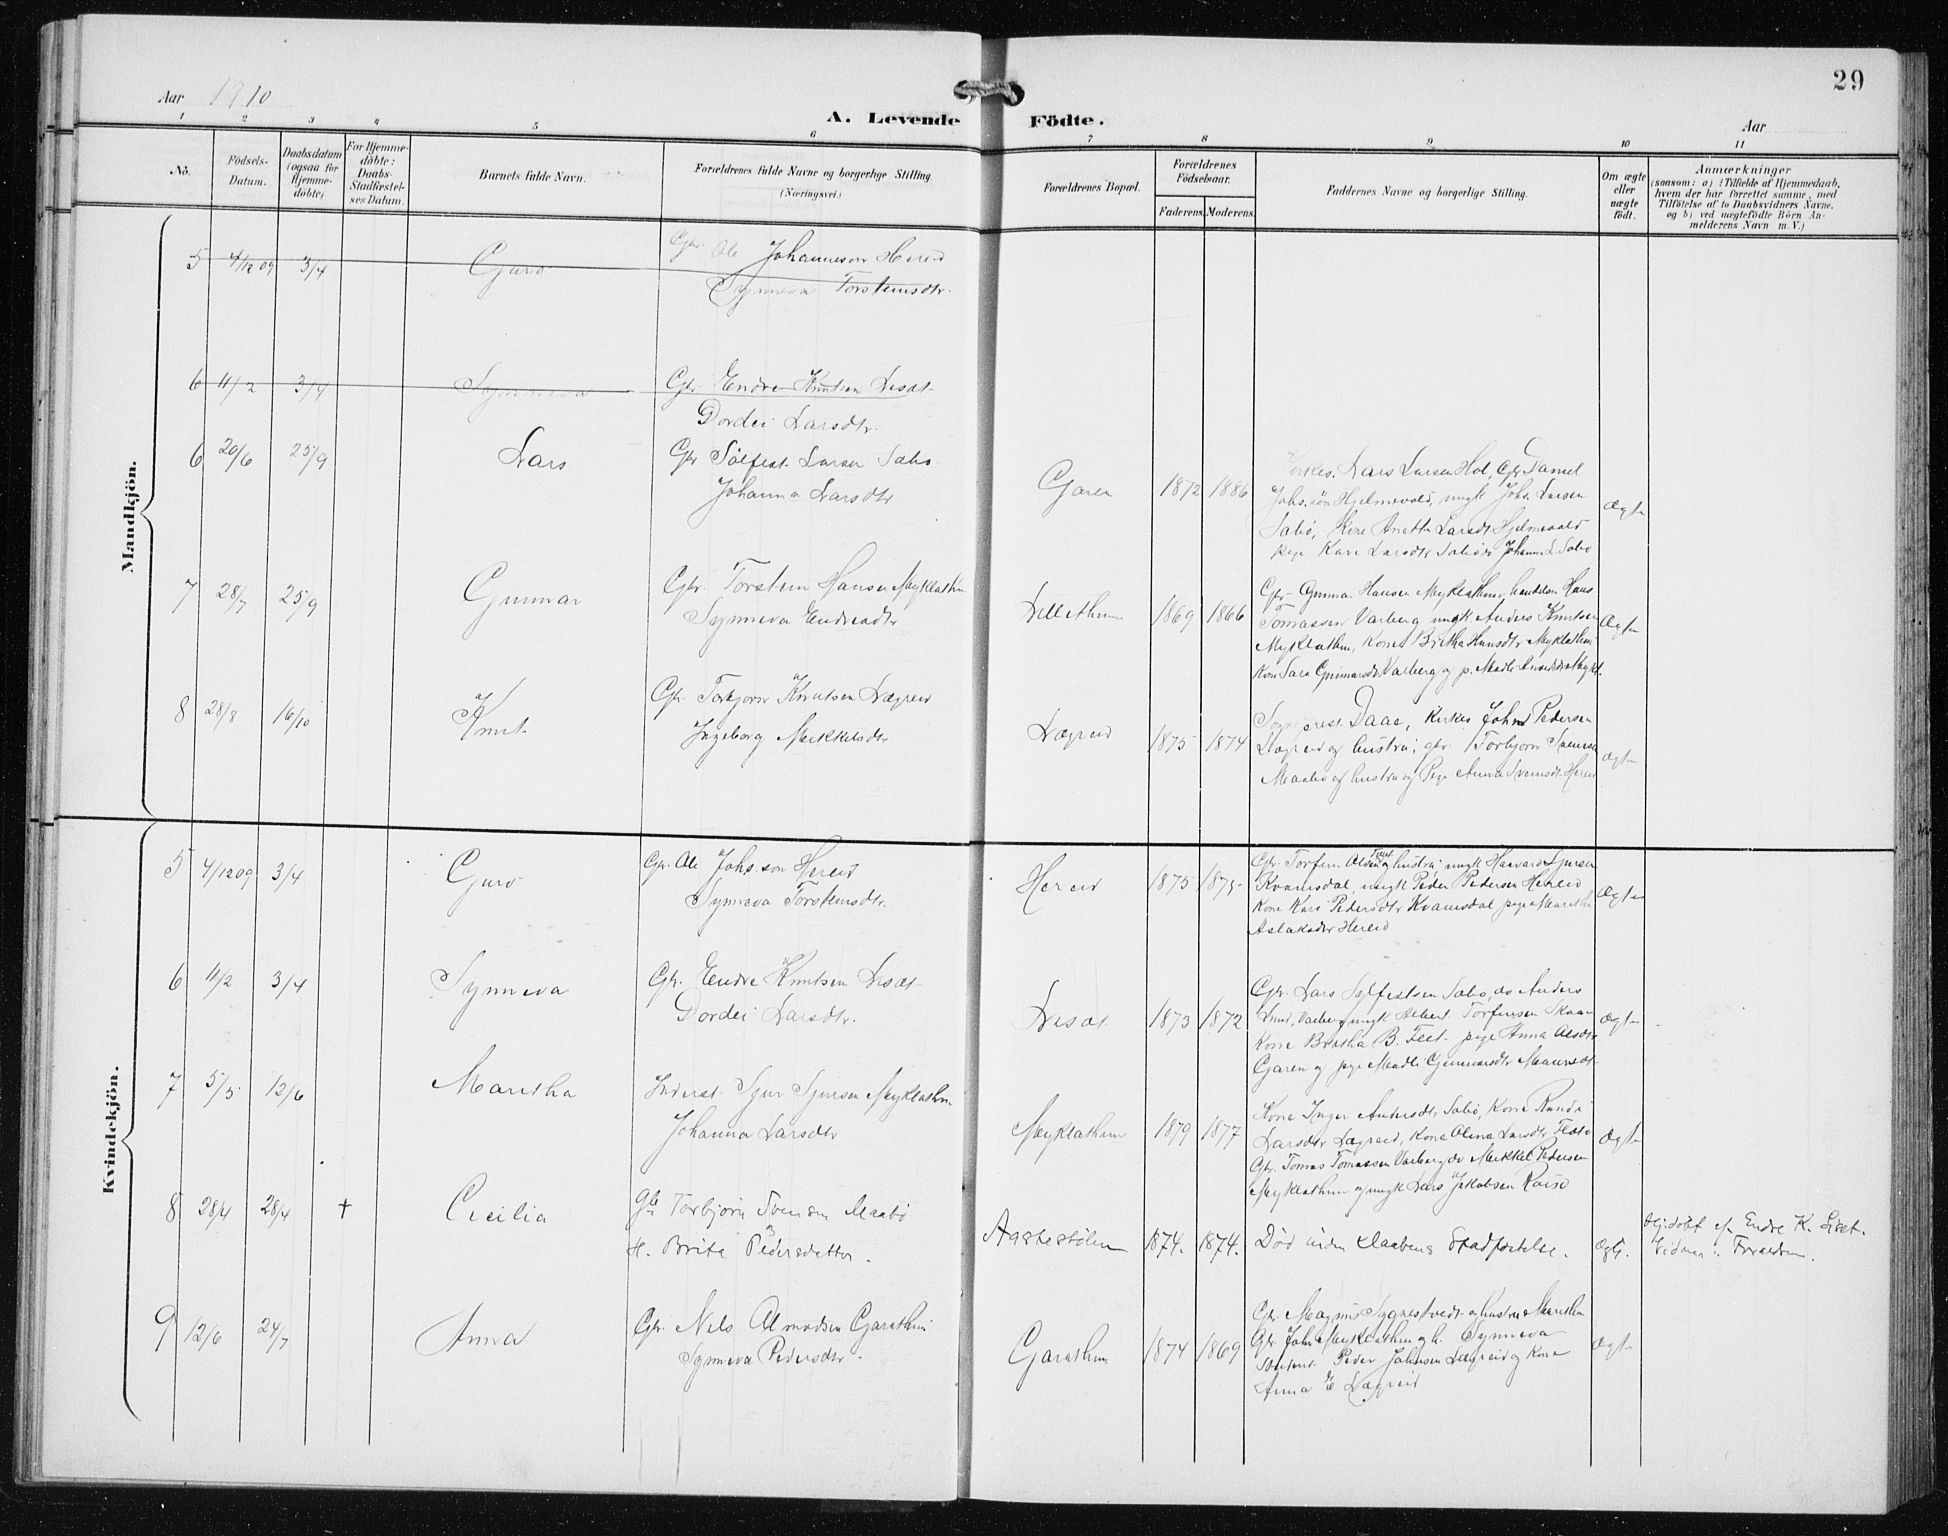 29
Aar 1910
A. Levende Födte.
Aar
1 2 3 4 5 6 7 8 9 10 11
No.
Födsels-Datum.
Daabsdatum (ogsaa for Hjemme-döbte)
For Hjemme-döbte: Daabs-Stadfæstel-ses Datum.
Barnets fulde Navn.
Forældrenes fulde Navne og borgerlige Stilling. (Næringsvei.)
Forældrenes Bopæl.
Forældrenes Födselsaar.
Faderens. Moderens.
Faddernes Navne og borgerlige Stilling.
Om ægte eller uægte födt.
Anmærkninger
(saasom: a) i Tilfælde af Hjemmedaab,
hvem der har forrettet samme, med
Tilföielse af to Daabsvidners Navne.
og b) ved uægtefödte Börn An-
melderens Navn m. V.)
Mandkjön.
5 4/12 09 3/4 Guro Gbr. Ole Johannesson Hereid
Synneva Torsteinsdtr.
6 11/2 3/4 Synneva Gbr. Endre Knutsen Lisæt
Dordei Larsdtr.
6 20/6 25/9 Lars Gbr Sölfest Larsen Sabö
Johanna Larsdtr
Garen 1872 1886
Kirkes. Lars Larsen Hol, Gbr. Daniel
Johs.sön Hjelmevold, ungk Johs. Larsen
Sabö, Kone Anetta Larsdt Hjelmevold
pige Kari Larsdtr Sabö Johanna L. Sabö
Ægte
7 28/7 25/9 Gunnar Gbr. Torstein Hansen Myklathun
Synneva Endredtr
Lillethun 1869 1866
Gbr Gunnar Hansen Myklathun, handelsm Hans
Tomassen Varberg ungk. Anders Knutsen
Myklathun, Kone Britha Hansdtr Myklathun
Kone Sara Gunnarsdtr Varberg og p. Madli
Ægte
8 28/8 16/10 Knut Gbr. Torbjorn Knutsen Lægreid
Ingeborg Mikkelsdtr
Lægreid 1875 1874
Sogneprest Daae, Kirkes John Pedersen
Lægreid og hustru, gbr Torbjorn Svensen
Maabö og hustru og Pige Anna Svensdt. Hereid
Ægte
Kvindekjön.
5 4/12 09 3/4 Guro Gbr. Ole Johs.son Hereid
Synneva Torsteinsdtr.
Hereid 1875 1875
Gbr. Torfinn Olsen Feet og hustru, ungk Haavard Sjursen
Kvamsdal, ungk Peder Pedersen Hereid
Kone Kari Pedersdtr Kvamsdal pige Maritha
Aslaksdtr Hereid
Ægte
6 11/2 3/4 Synneva Gbr. Endre Knutsen Lisæt
Dordei Larsdtr.
Lisæt 1873 1872
Gbr. Lars Sylfestsen Sabö, do Anders
Lund, Varberg ungk Albert Torfinsen Skaar
Kone Britha B. Feet. pige Anna Olsdtr
Garen og pige Madli Gunnarsdtr Maurset
Ægte
7 5/5 12/6 Maritha Inderst. Sjur Sjursen Myklathun
Johanna Larsdtr
Myklathun 1879 1877
Kone Inger Andersdtr Sabö, Kone Randi
Larsdtr Lægreid, Kone Olina Larsdtr Flöto
Gbr. Tomas Tomassen Varberg do Mikkel Pedersen
Myklathun og ungk Lars Jakobsen Röisö
Ægte
8 28/4 28/4 † Cecilia Gbr Torbjörn Svensen Maabö
H. Brita Pedersdatter.
Aastestölen 1874. 1874. Död inden Daabens Stadfæstelse. Ægt.
Hj.döbt af Endre K. Liset.
Vidner: Forældrene.
9 12/6 24/7 Anna Gbr. Nils Olmodsen Garathun
Synneva Pedersdtr.
Garathun 1874 1869
Gbr. Magnus Sygnestveit og hustru Maritha
Gbr. John Myklathun og h. Synneva
Peder Johnsen Lægreid og Kone
Anna E Lægreid
Ægte